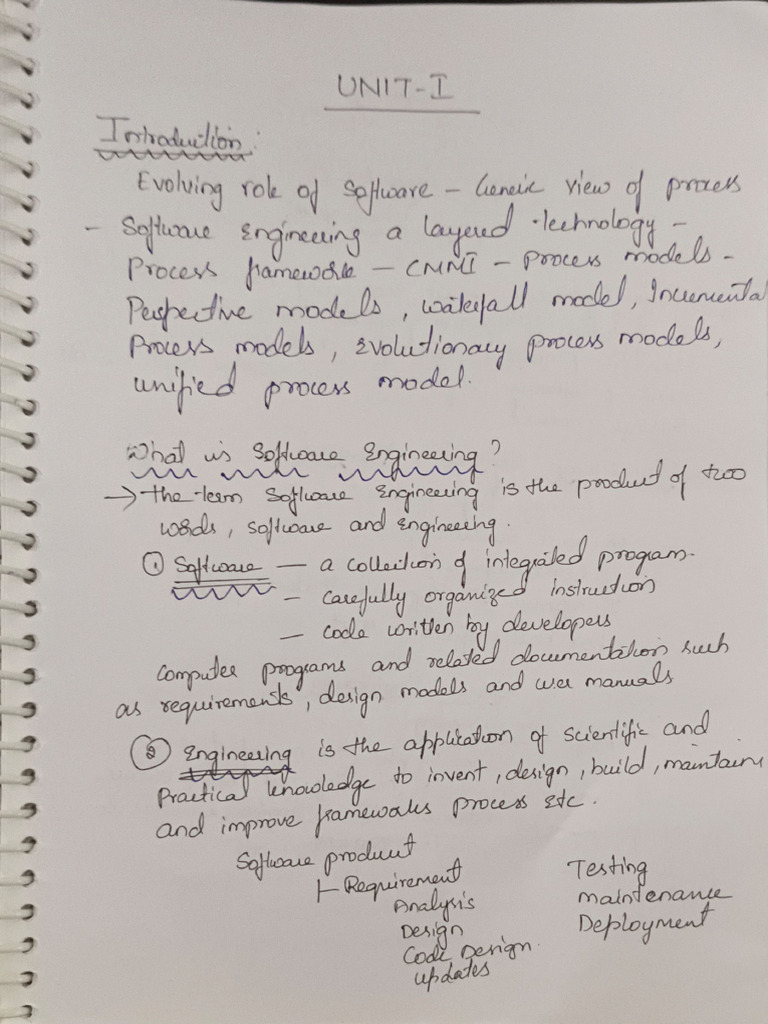 UNIT-I
Introduction:
Evolving role of Software - Generic view of process
- Software Engineering a layered technology -
Process framework - CMMI - Process models -
Perspective models, waterfall model, Incremental
Process models, Evolutionary process models,
unified process model.
What is Software Engineering?
→ the term Software Engineering is the product of two
words, software and engineering.
① Software — a collection of integrated program.
- carefully organized instruction
- code written by developers
Computer programs and related documentation such
as requirements, design models and user manuals
② Engineering is the application of scientific and
Practical knowledge to invent, design, build, maintain,
and improve frameworks process etc.
Software product
Requirement Testing
Analysis maintenance
Design Deployment
Code Design.
updates